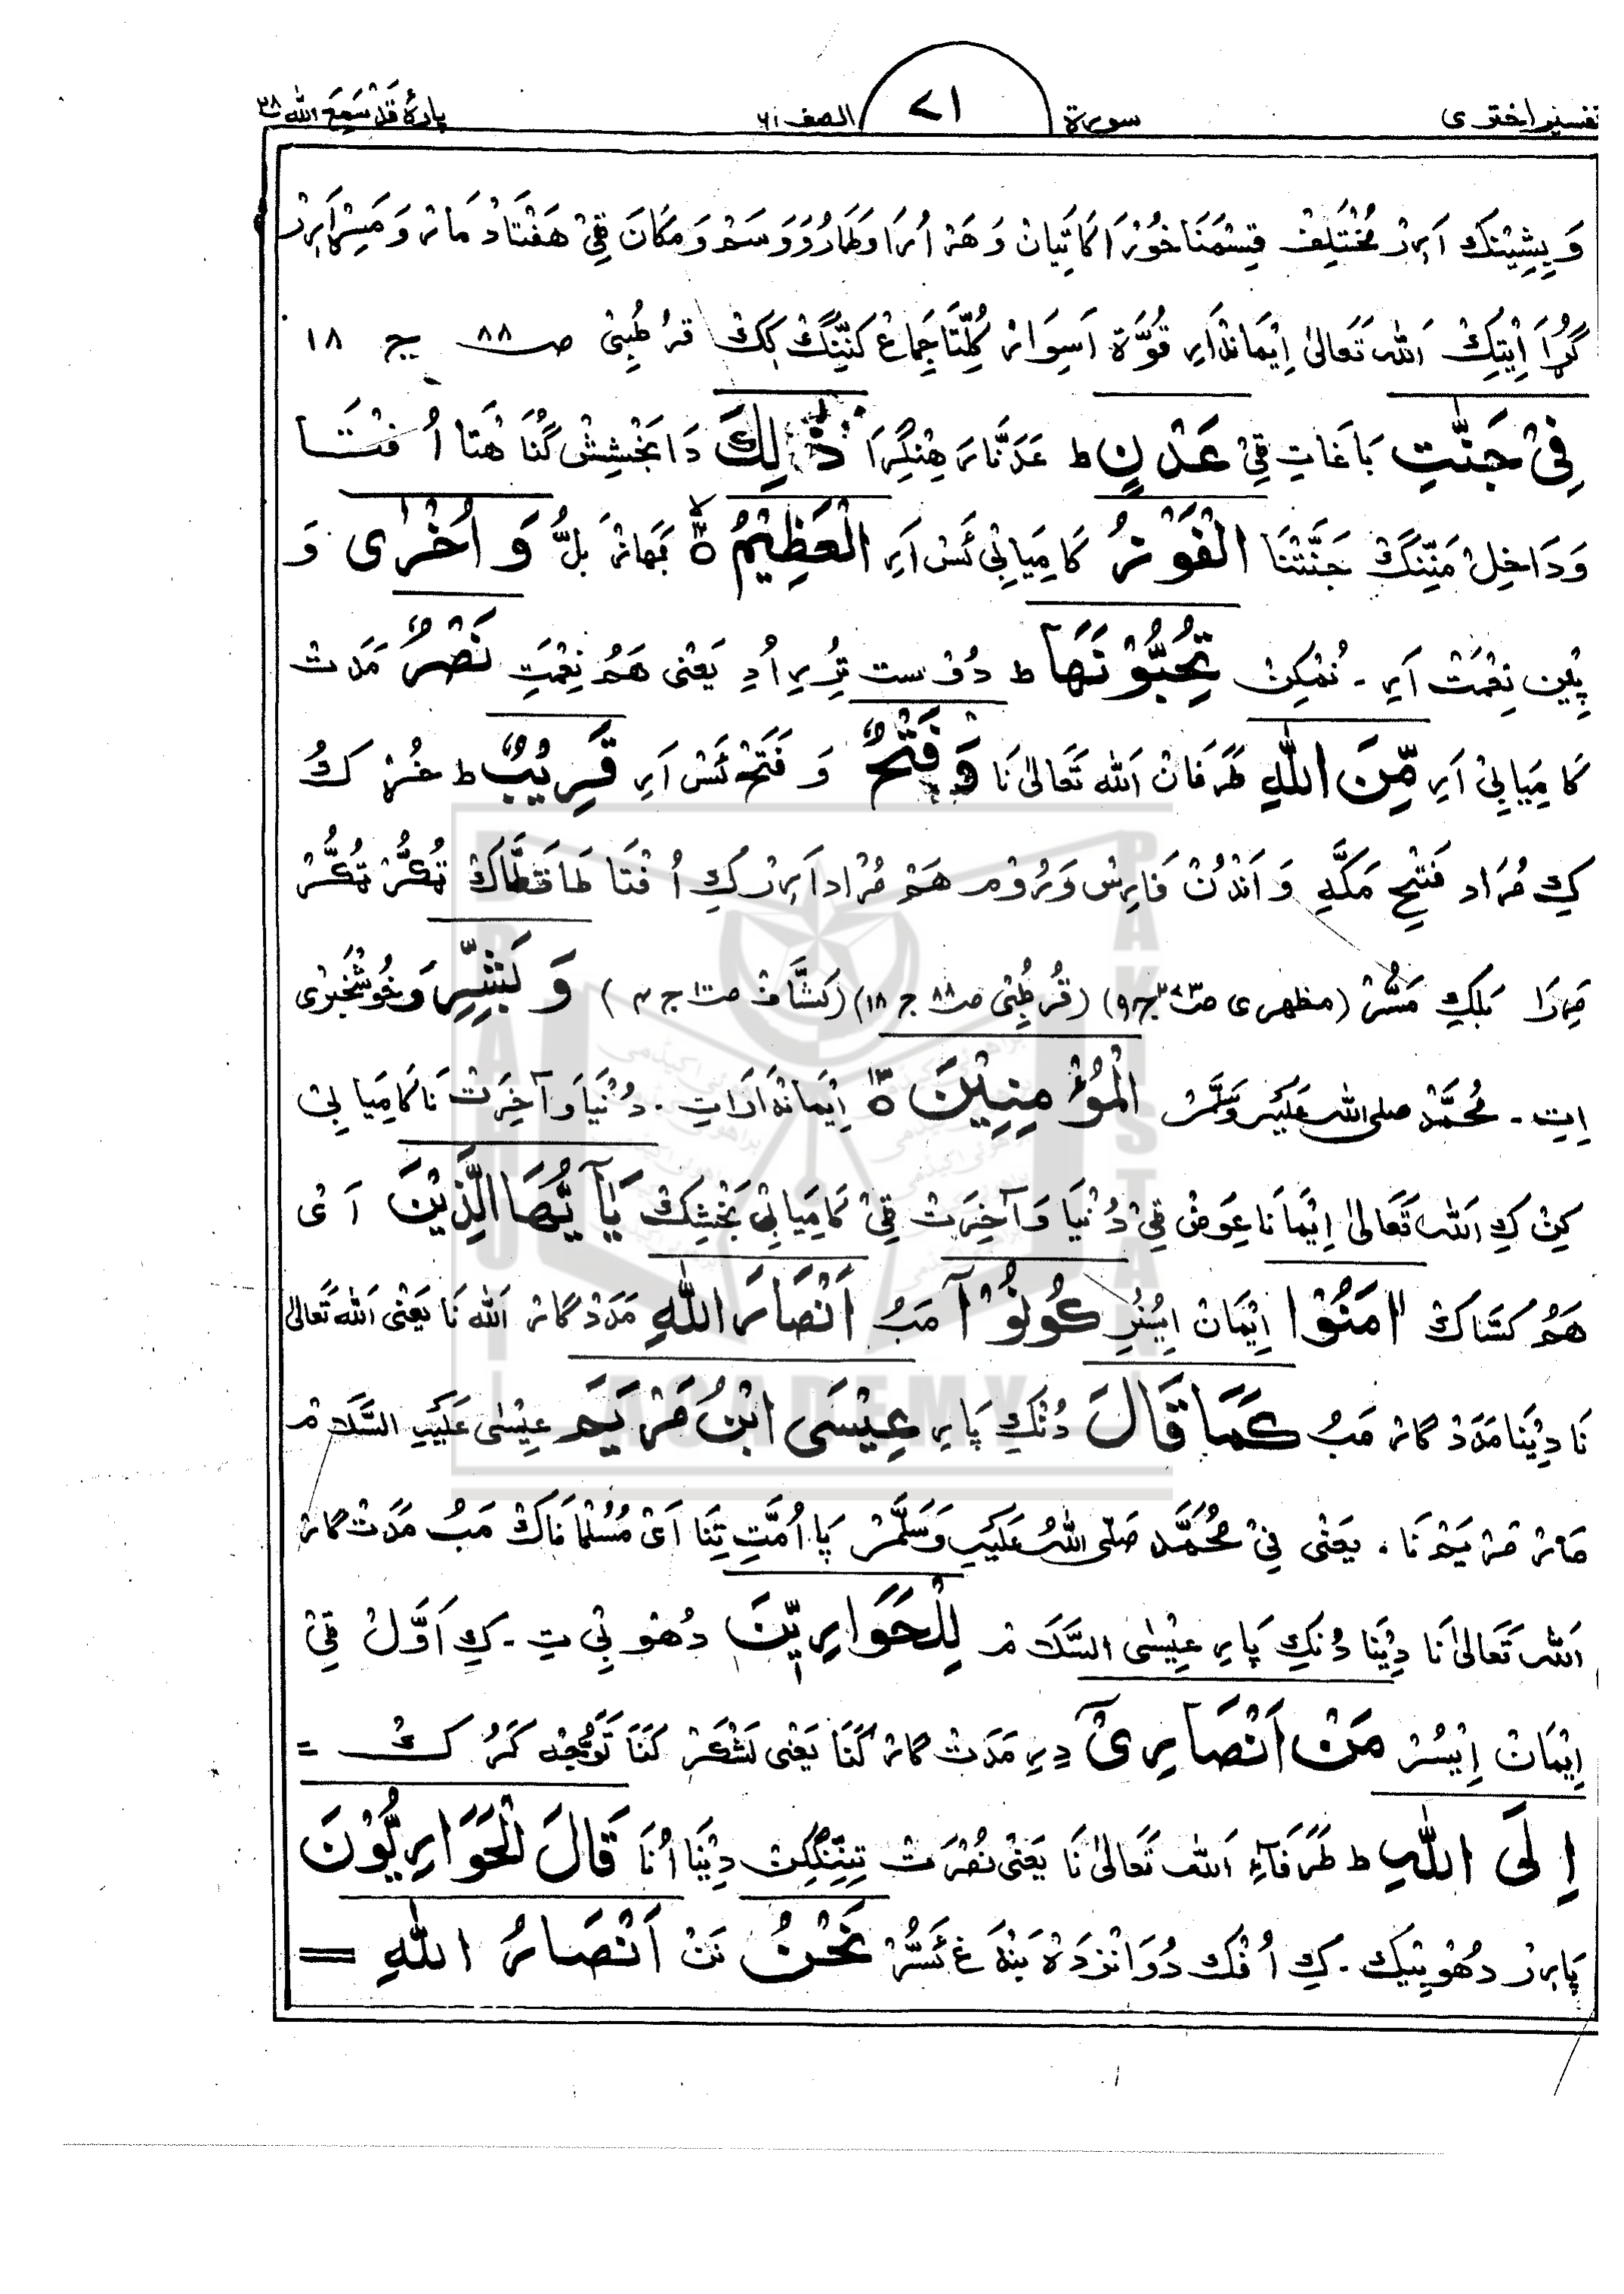 تفسیر اختری سورة ۷۱ الصف ۶۱ پارہ قَدْ سَمِعَ اللہ ۲۸
وَ پِشِیْنک اَرِیر مُخْتَلِف قِسْمَنَا خُوْرَاکَاتِیَان وَ هَرْ اُرَا وَ وَسَم وَ مَکَان قِیْ هَفْتَاد مَار وَ مَسِر اَرِیر
اِیْتِکْ اَللہ تَعَالیٰ اِیْمَانْدَار قُوَّة اَسِوَار کُلِّتَا جِمَاع کَنِّنْگ کِکْ قرطُبِیْ صـ ۸۸ ج ۱۸
فِیْ جَنّٰتِ بَاغَاتِ قِیْ عَدْنٍ ط عَدَنَّا هِنْگِرَا ذٰلِکَ دَا بَخْشِشْ گُنَاهْتَا اُفْتَا
وَ دَاخِلْ مَنِّنْگْ جَنَّتْنَا الْفَوْزُ کَامِیَابِیْ ئَسْ اَرِ الْعَظِیْمُ ۱۲ بَهَاز بَلُّ وَ اُخْرٰی وَ
پِیْن نِعْمَتْ اَرِ ۔ نُمْکِنْ تُحِبُّوْنَهَا ط دُوْست تُرِرِ اُدِ یَعْنی هَمُ نِعْمَتِ نَصْرٌ مَدَتْ
کَامِیَابِیْ اَرِ مِّنَ اللّٰہِ طَرَفَانْ اَللہ تَعَالیٰ نَا وَ فَتْحٌ وَ فَتَحْ ئَسْ اَرِ قَرِیْبٌ ط خُرْک
کِ مُرَاد فَتْحِ مَکَّہ وَ اَنْدُنْ فَارِسْ وَ رُوْم هَمْ مُرْاد اَرِیر کِ اُفْتَا طَاقَتَاکْ تُکُرّ تُکُرّ
بَلکِ مَسُّرْ (مظهری صـ ۲۷۳ ج ۹) (قُرطُبِیْ صـ ۸۸ ج ۱۸) (کشَّاف صـ ۱۰ ج ۴) وَ بَشِّرِ وَ خُوشْخَبْرِی
اِتِ ۔ مُحَمَّدْ صلی اللہ عَلَیْہِ وَسَلَّمْ الْمُؤْمِنِیْنَ ۱۳ اِیْمَانْدَارَاتِ ۔ دُنْیَا وَ آخِرَتْ نَا کَامِیَابِیْ
کِنْ کِ اَللہ تَعَالیٰ اِیْمَانَا عِوَض قِیْ دُنْیَا وَ آخِرَتْ قِیْ کَامِیَابِیْ بَخْشِکْ یٰٓاَیُّهَا الَّذِیْنَ اَیْ
هَمُ کَسَّاکْ اٰمَنُوْا اِیْمَان اِیْسُنُرِ کُوْنُوْٓا مَبُ اَنْصَارَ اللّٰہِ مَدَدْگَار اَللہ نَا یَعْنی اَللہ تَعَالیٰ
نَا دِیْنَا مَدَدْگَار مَبُ کَمَا قَالَ دُنْکِ پَارِ عِیْسَی ابْنُ مَرْیَمَ عِیْسٰی عَلَیْہِ السَّلَام
مَار مَرْیَمْ نَا ۔ یَعْنی نِیْ مُحَمَّد صَلَّی اللہُ عَلَیْہِ وَسَلَّمْ پَا اُمَّتِ تِنَا اَیْ مُسُلْمَانَاکْ مَبُ مَدَتْگَار
اَللہ تَعَالیٰ نَا دِیْنَا دُنکِ پَارِ عِیْسٰی السَّلَام لِلْحَوَارِیّٖنَ دُهوبِیْ تِ ۔ کِ اَوَّل قِیْ
اِیْمَان اِیْسُرْ مَنْ اَنْصَارِیْٓ دِیرِ مَدَتْ گَار کَنَا یَعْنی لَشْکَرْ کَنَا تَوَجُّہ کَرُ کـ =
اِلَی اللّٰہِ ط طَرَفَآءِ اَللہ تَعَالیٰ نَا یَعْنی نُصْرَتْ تِنِنْگِکِنْ دِیْنَا اُنَا قَالَ الْحَوَارِیُّوْنَ
پَارِر دُهوبِیْک ۔ کِ اُفْک دُوَانْزْدَہ بَنْدَغ ئَسُّرْ نَحْنُ نَنْ اَنْصَارُ اللّٰہِ =
BRAHUI ACADEMY PAKISTAN